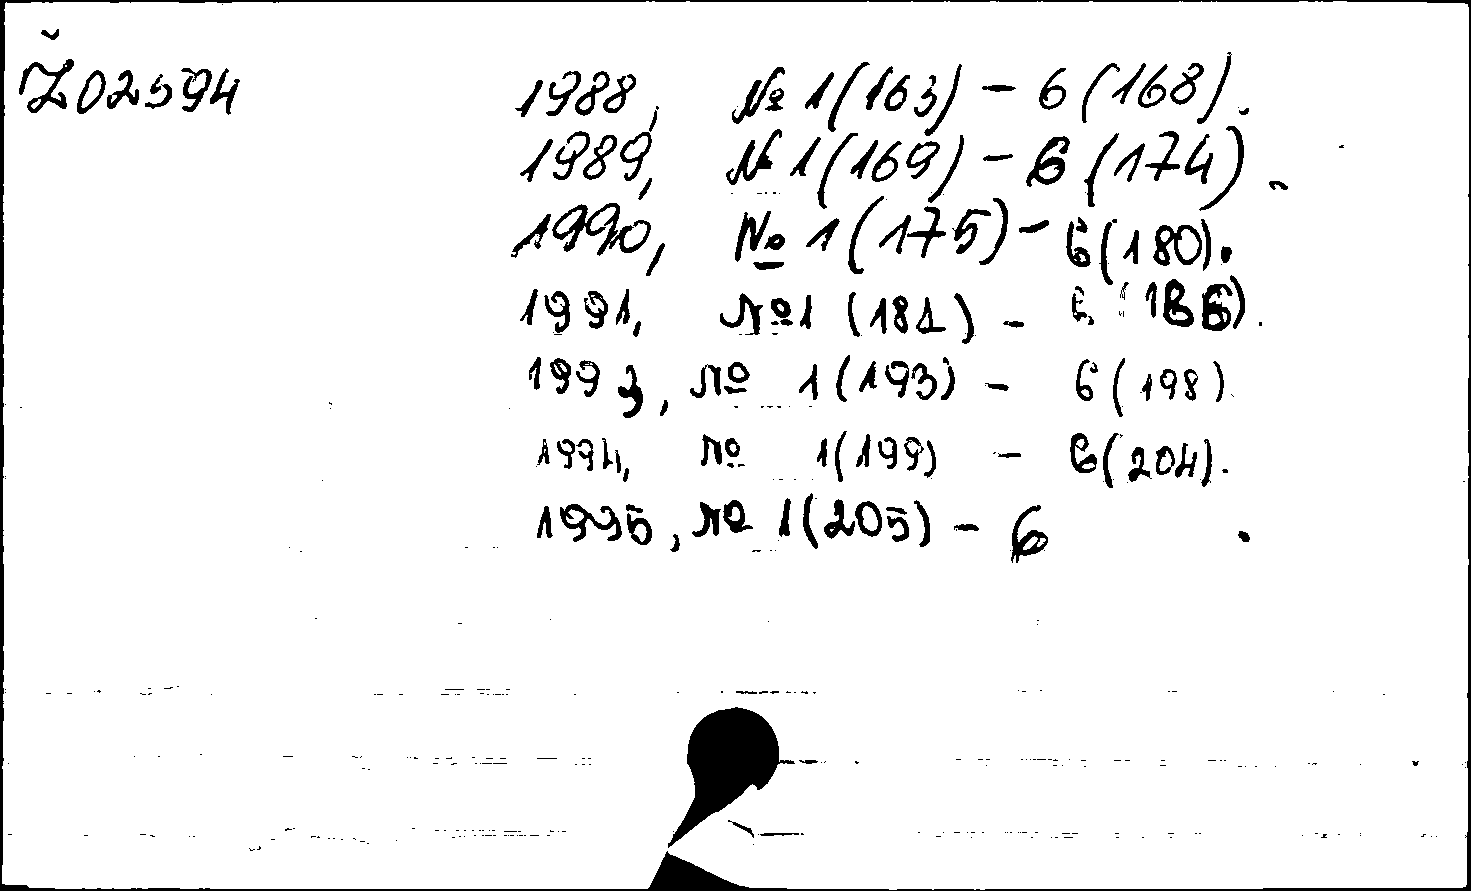 Ž02594 1988, № 1(163) – 6(168).
1989, № 1(169) – 6(174).
1990, № 1(175) – 6(180).
1991, № 1(181) – 6(186).
1993, № 1(193) – 6(198)
1994, № 1(199) – 6(204).
1995, № 1(205) – 6 .